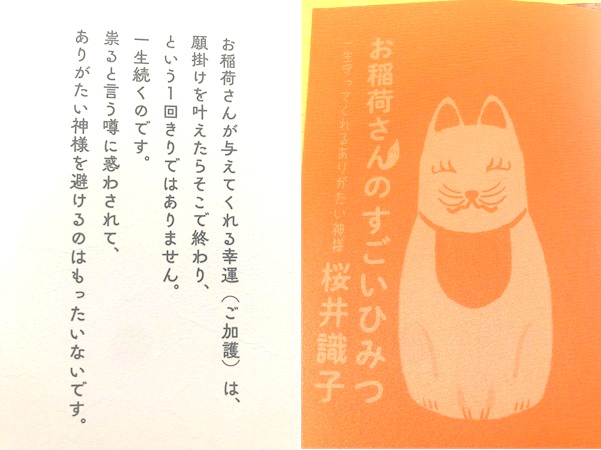 お稲荷さんが与えてくれる幸運（ご加護）は、
願掛けを叶えたらそこで終わり、
という1回きりではありません。
一生続くのです。
祟ると言う噂に惑わされて、
ありがたい神様を避けるのはもったいないです。
お稲荷さんのすごいひみつ
一生守ってくれるありがたい神様
桜井識子